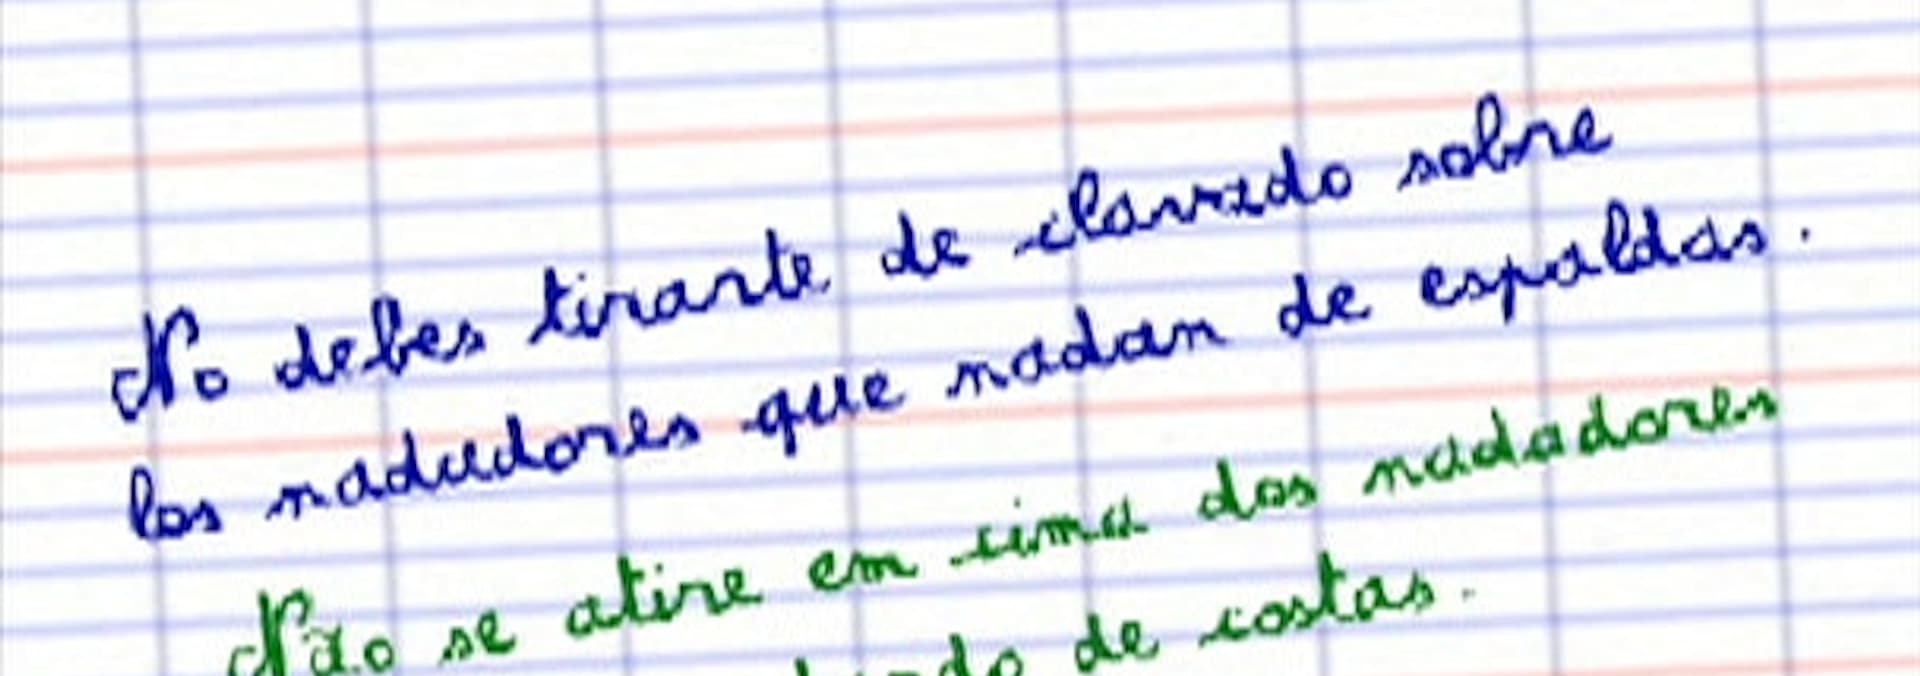 No debes tirarte de clavado sobre
los nadadores que nadan de espaldas.
Não se atire em cima dos nadadores
de costas.